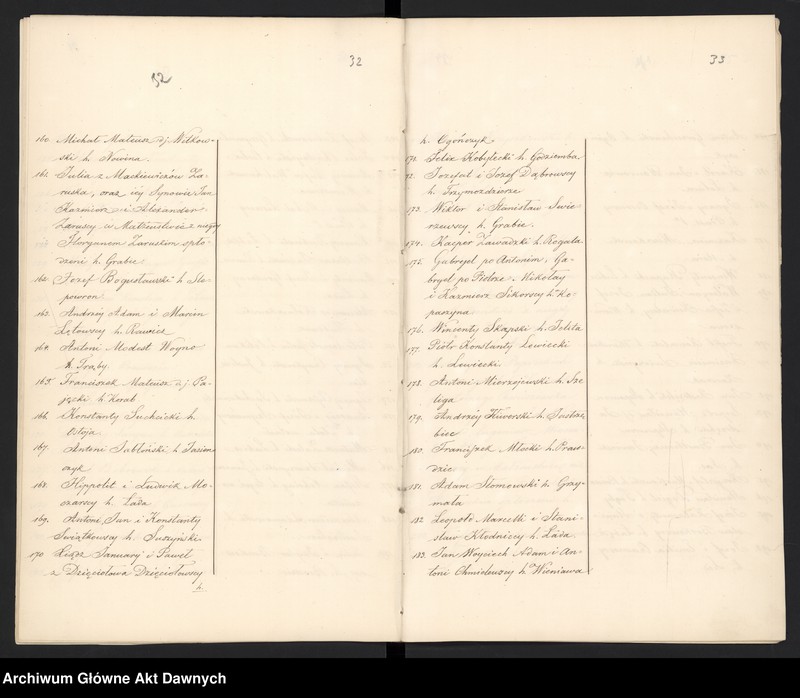 32
32
160. Michał Mateusz dj. Witkow-
ski h. Nowina.
161. Julia z Mackiewiczów Za-
ruska, oraz iéy Synowie Jan
Kazimierz i Alexander
Zaruscy w Małżeństwie z niegdy
Floryanem Zaruskim spło-
dzeni h. Grabie.
162. Józef Bogusławski h. Sle-
powron.
163. Andrzey Adam i Marcin
Łętowscy h. Rawicz
164. Antoni Modest Woyno
h. Trąby.
165. Franciszek Mateusz dj. Pa-
jęcki h. Korab
166. Konstanty Suchcicki h.
Ostoja.
167. Antoni Jabłoński h. Jasień-
czyk
168. Hippolit i Ludwik Mo-
szarscy h. Łada
169. Antoni, Jan i Konstanty
Swiątkowscy h. Suszyński.
170. Xiądz January i Paweł
z Dzięciołowa Dzięciołowscy
h.
33
h. Ogończyk
171. Felix Kobyłecki h. Godziemba
172. Jozefat i Jozef Dąbrowscy
h. Trzymozdzierze
173. Wiktor i Stanisław Swie-
rzewscy h. Grabie.
174. Kasper Zawadzki h. Rogala.
175. Gabryel po Antonim, Ga-
bryel po Piotrze, Mikołay
i Kazimierz Sikorscy h. Ko-
paszyna
176. Wincenty Skapski h. Jelita
177. Piotr Konstanty Lewiecki
h. Lewiecki.
178. Antoni Mierzejewski h. Sze-
liga
179. Andrzéy Huworski h. Jastrzę-
biec
180. Franciszek Młocki h. Praw-
dzic
181. Adam Słomowski h. Grzy-
mała
182. Leopold Marcelli i Stani-
sław Kłodniccy h. Łada.
183. Jan Woyciech Adam i An-
toni Chmielewscy h. Wieniawa
Archiwum Główne Akt Dawnych